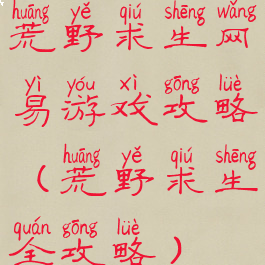 huāng yě qiú shēng wǎng
荒野求生网
yì yóu xì gōng lüè
易游戏攻略
huāng yě qiú shēng
（荒野求生
quán gōng lüè
全攻略）